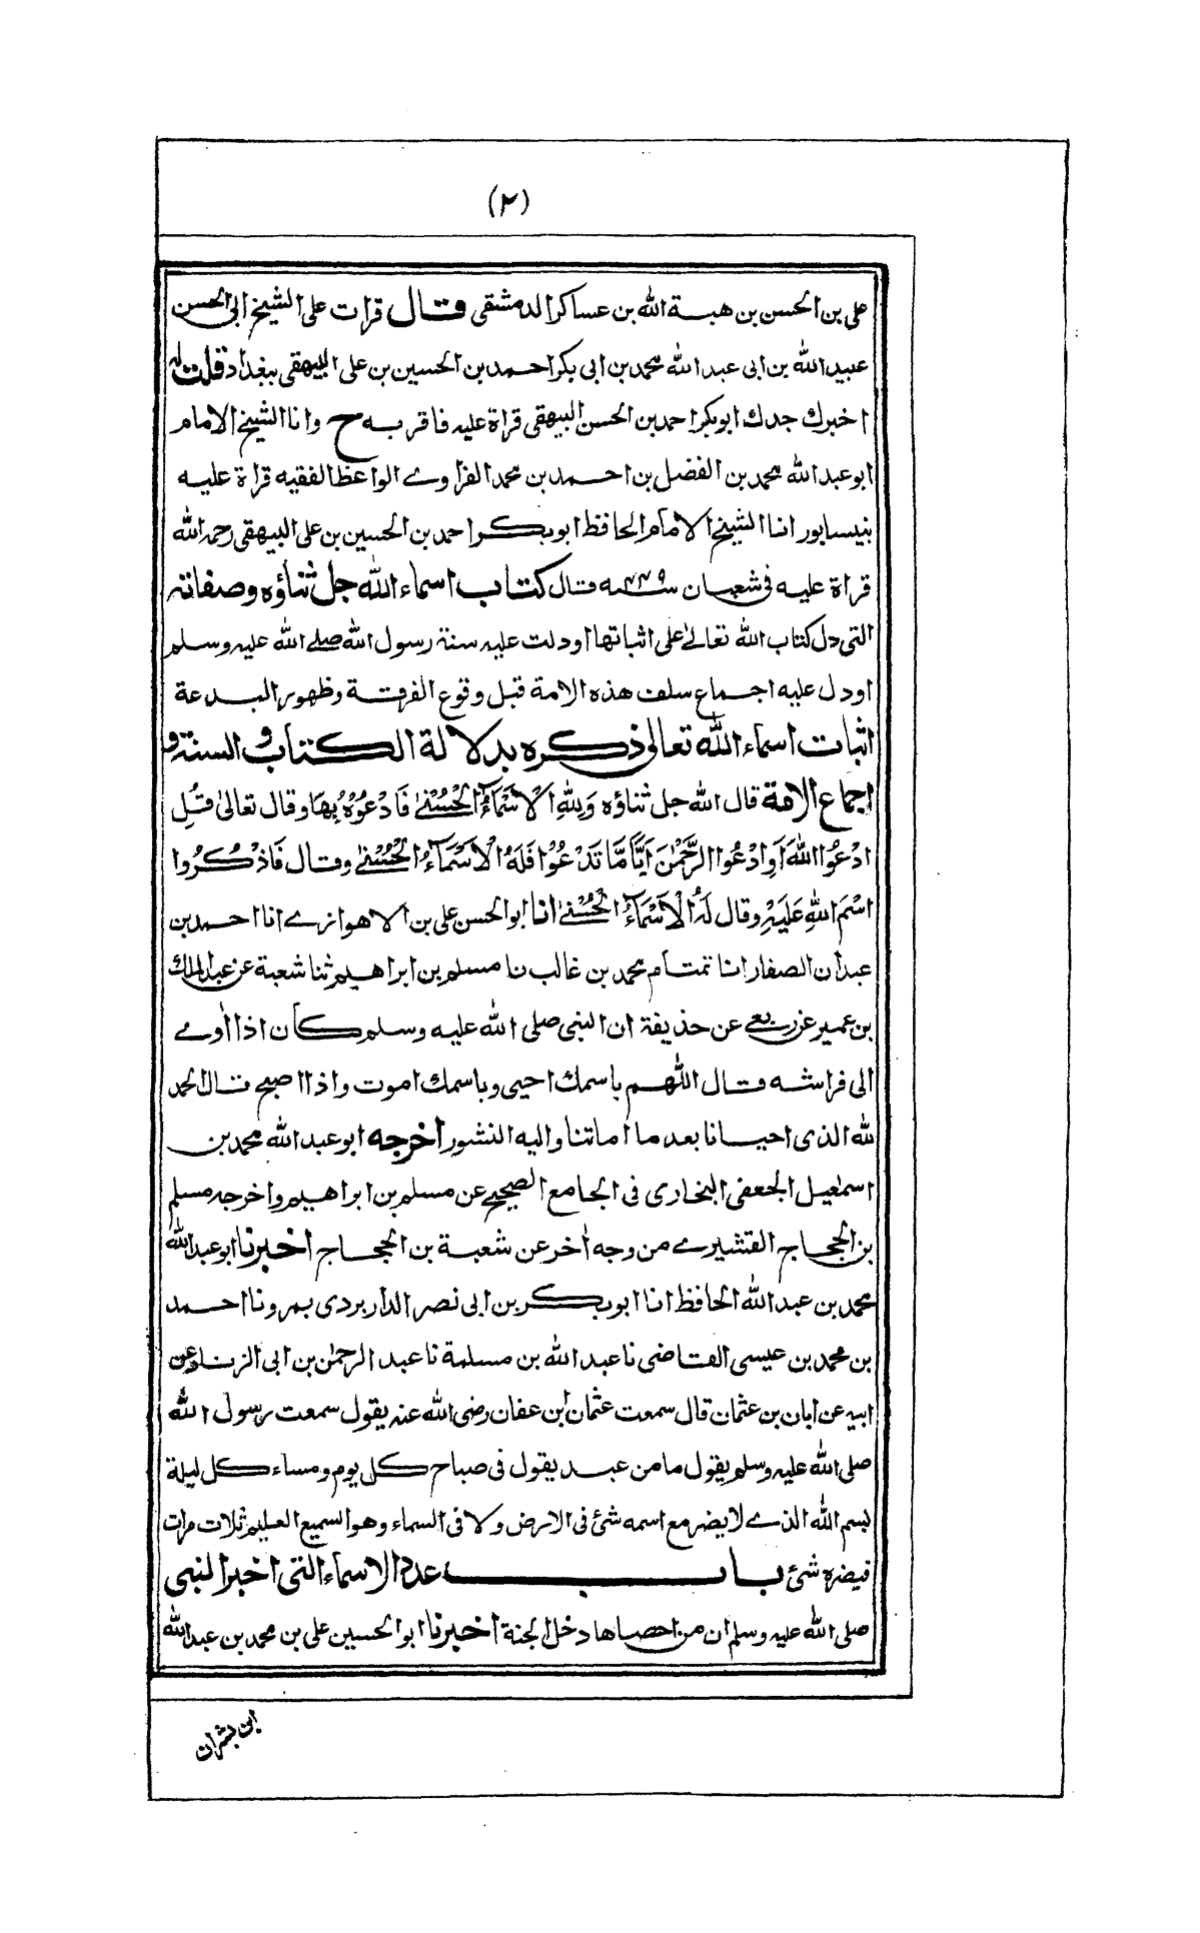 (٢)
علی بن الحسن بن هبة الله بن عساکر الدمشقی قال قرات علی الشیخ ابی الحسن
عبید الله بن ابی عبد الله محمد بن ابی بکر احمد بن الحسین بن علی البیهقی ببغداد قلت له
اخبرك جدك ابوبکر احمد بن الحسن البیهقی قراة علیه فاقر به ح وانا الشیخ الامام
ابو عبد الله محمد بن الفضل بن احمد بن محمد الفراوے الواعظ الفقیه قراة علیه
بنیسابور انا الشیخ الامام الحافظ ابوبکر احمد بن الحسین بن علی البیهقی رحمه الله
قراة علیه فی شعبان سنه ٤٤٩ قال کتاب اسماء الله جل ثناؤه وصفاته
التی دل کتاب الله تعالیٰ علی اثباتها اودلت علیه سنة رسول الله صلے الله علیه وسلم
اودل علیه اجماع سلف هذه الامة قبل وقوع الفرقة وظهور البدعة
اثبات اسماء الله تعالیٰ ذکره بدلالة الکتاب والسنة و
اجماع الامة قال الله جل ثناؤه وَلِلّٰهِ الْاَسْمَآءُ الْحُسْنٰے فَادْعُوْهُ بِهَا وقال تعالیٰ قُلِ
ادْعُوا اللّٰهَ اَوِ ادْعُوا الرَّحْمٰنَ اَیًّا مَّا تَدْعُوْا فَلَهُ الْاَسْمَآءُ الْحُسْنٰے وقال فَاذْكُرُوا
اسْمَ اللّٰهِ عَلَیْهِ وقال لَهُ الْاَسْمَآءُ الْحُسْنٰے انا ابو الحسن علی بن الاهوازے انا احمد بن
عبدان الصفار انا تمتام محمد بن غالب نا مسلم بن ابراهیم ثنا شعبة عن عبد الملك
بن عمیر عن ربعے عن حذیفة ان النبی صلی الله علیه وسلم کان اذا اوے
الی فراشه قال اللّٰهم باسمك احیی وباسمك اموت واذا اصبح قال الحمد
لله الذی احیانا بعد ما اماتنا والیه النشور اخرجه ابو عبد الله محمد بن
اسمٰعیل الجعفی البخاری فی الجامع الصحیح عن مسلم بن ابراهیم واخرجه مسلم
بن الحجاج القشیرے من وجه اٰخر عن شعبة بن الحجاج اخبرنا ابو عبد الله
محمد بن عبد الله الحافظ انا ابوبکر بن ابی نصر الداربردی بمرونا احمد
بن محمد بن عیسی القاضی نا عبد الله بن مسلمة نا عبد الرحمٰن بن ابی الزناد عن
ابیه عن ابان بن عثمان قال سمعت عثمان ابن عفان رضی الله عنه یقول سمعت رسول الله
صلی الله علیه وسلم یقول ما من عبد یقول فی صباح کل یوم ومساء کل لیلة
بسم الله الذے لا یضر مع اسمه شئ فی الارض ولا فی السماء وهو السمیع العلیم ثلاث مرات
فیضره شئ باب عدد الاسماء التی اخبر النبی
صلی الله علیه وسلم ان من احصاها دخل الجنة اخبرنا ابو الحسین علی بن محمد بن عبد الله
ابن بشران